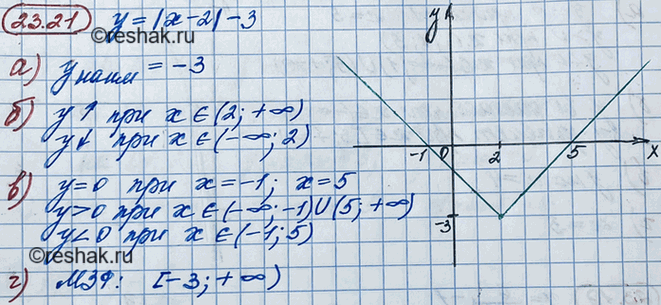 23.21 y = |x-2| -3
©reshak.ru
а) y наим = -3
б) y↑ при x∈(2; +∞)
y↓ при x∈(-∞; 2)
в) y=0 при x=-1; x=5
y>0 при x∈(-∞; -1)∪(5; +∞)
y<0 при x∈(-1; 5)
г) МЗФ: [-3; +∞)
©reshak.ru
y
-1 0 2 5 x
-3
©reshak.ru